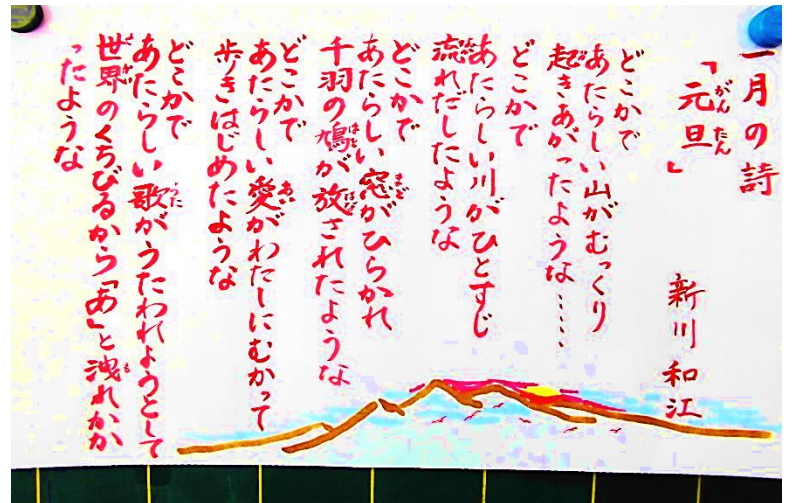 一月の詩
「元旦」
新川和江
どこかで
あたらしい山がむっくり
起きあがったような……
どこかで
あたらしい川がひとすじ
流れだしたような
どこかで
あたらしい窓がひらかれ
千羽の鳩が放されたような
どこかで
あたらしい愛がわたしにむかって
歩きはじめたような
どこかで
あたらしい歌がうたわれようとして
世界のくちびるから「あ」と洩れかか
ったような